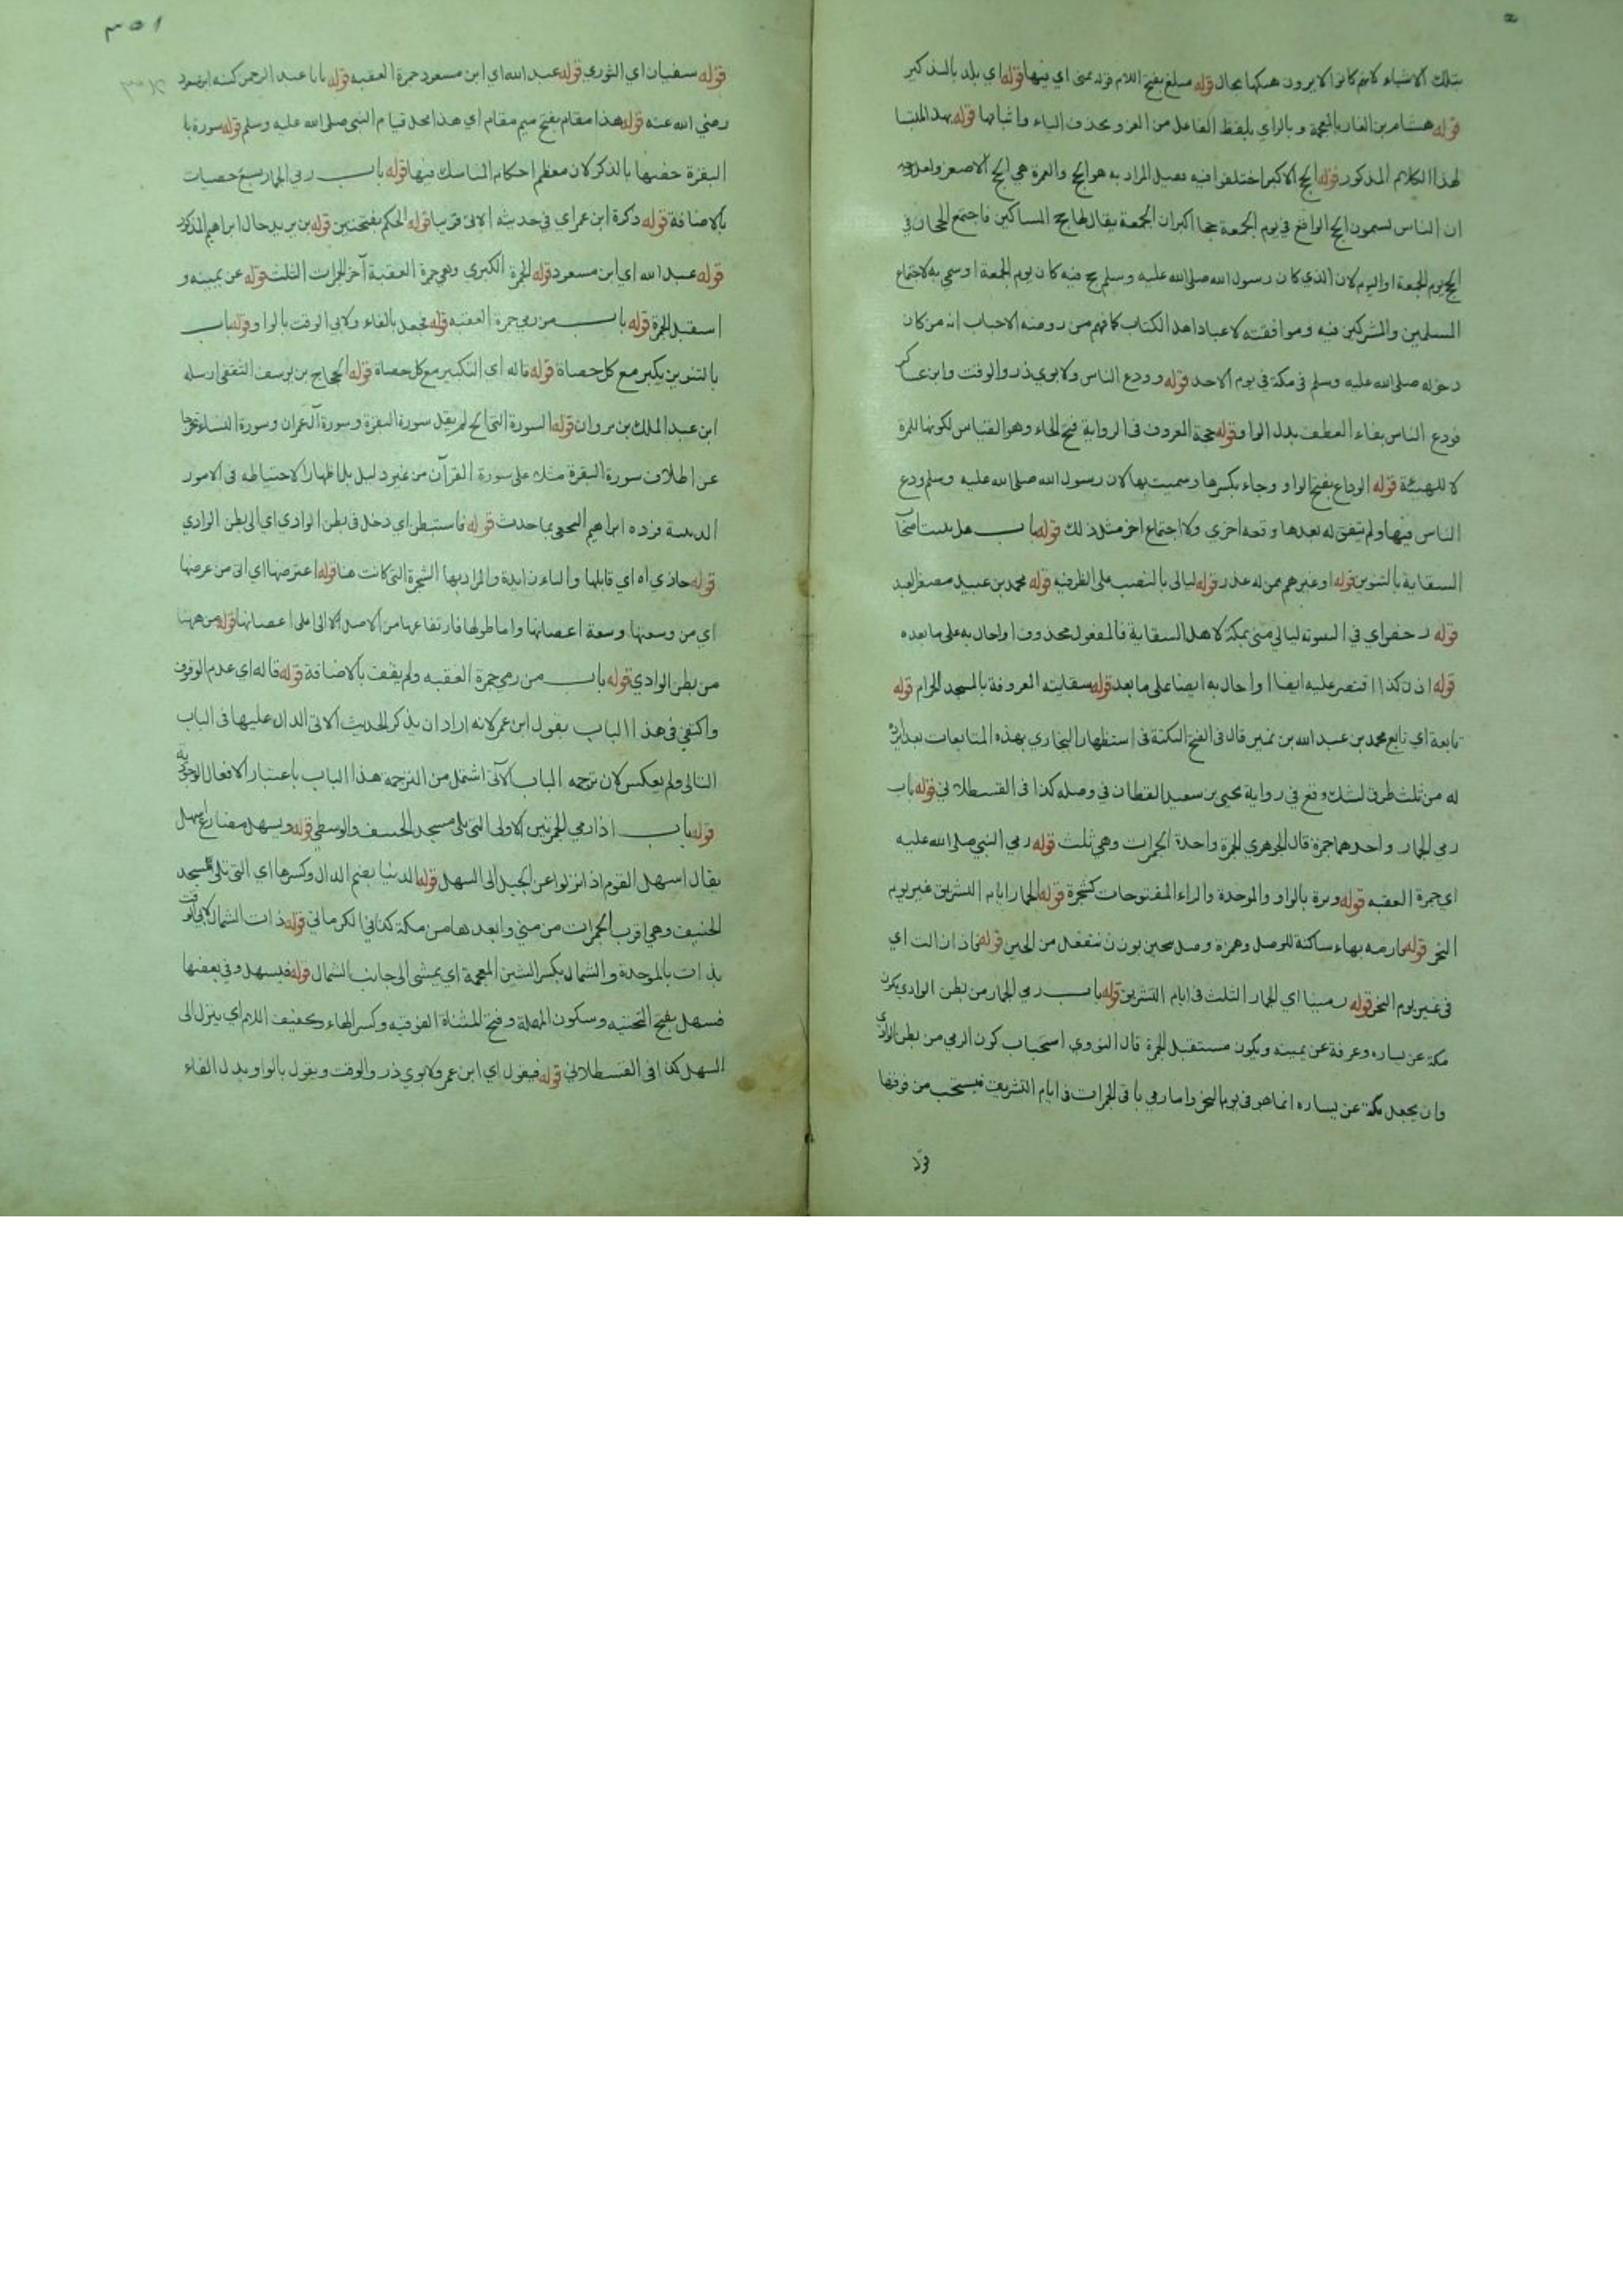 بتلك الاشياء لانهم كانوا لا يرون هتكها بحال قوله مبلغ بفتح اللام قوله بمنى اي فيها قوله اي بلد بالتذكير
قوله هشام بن الغاز بالمعجمة و بالزاي بلفظ الفاعل من الغزو بحذف الياء واثباتها قوله بهذا ملتبسا
لهذا الكلام المذكور قوله الحج الاكبر اختلفوا فيه فقيل المراد به هو الحج والعمرة هي الحج الاصغر ولعل
ان الناس يسمون الحج الواقع في يوم الجمعة حجا اكبر ان الجمعة يقال لها حج المساكين فاجتمع الحجان في
الحج يوم الجمعة او اليوم لان الذي كان رسول الله صلى الله عليه وسلم حج فيه كان يوم الجمعة او سمي به لاجتماع
المسلمين والمشركين فيه وموافقته لاعياد اهل الكتاب كما فهم من روضة الاحباب انه من كان
دخوله صلى الله عليه وسلم في مكة في يوم الاحد قوله وودع الناس ولابوي ذر والوقت وابن عساكر
فودع الناس بفاء العطف بدل الواو قوله حجة المعروف في الرواية فتح الحاء وهو القياس لكونها للمرة
لا للهيئة قوله الوداع بفتح الواو وجاء بكسرها وسميت بها لان رسول الله صلى الله عليه وسلم ودع
الناس فيها ولم يتفق له بعدها وقعه اخري ولا اجتماع اخر مثل ذلك قوله باب هل يبيت اصحاب
السقاية بالتنوين قوله او غيرهم ممن له عذر قوله ليالي بالنصب على الظرفيه قوله محمد بن عبيد مصغر العبد
قوله رخص اي في البيتوتة ليالي منى بمكة لاهل السقاية فالمفعول محذوف او احال به على ما بعده
قوله اذن كذا اقتصر عليه ايضا او احال به ايضا على ما بعد قوله سقايته المعروفة بالمسجد الحرام قوله
تابعة اي تابع محمد بن عبد الله بن نمير قال في الفتح النكتة في استظهار البخاري بهذه المتابعات بعد ايراده
له من ثلث طرق لشك وقع في رواية يحيى بن سعيد القطان في وصله كذا في القسطلاني قوله باب
رمي الجمار واحدها جمرة قال الجوهري الجمرة واحدة الجمرات وهي ثلث قوله رمي النبي صلى الله عليه
اي جمرة العقبه قوله وبرة بالواو والموحدة والراء المفتوحات كشجرة قوله الجمار ايام التشريق غير يوم
النحر قوله فارمه بهاء ساكنة للوصل وهمزة وصل نتحين بوزن نتفعل من الحين قوله فاذا زالت اي
في غير يوم النحر قوله رمينا اي الجمار الثلث في ايام التشريق قوله باب رمي الجمار من بطن الوادي يكون
مكة عن يساره وعرفة عن يمينه ويكون مستقبل الجمرة قال النووي استحباب كون الرمي من بطن الوادي
وان يجعل مكة عن يساره انما هو في يوم النحر واما رمي باقي الجمرات في ايام التشريق فيستحب من فوقها
قوله
١٥٣
قوله سفيان اي الثوري قوله عبد الله اي ابن مسعود جمرة العقبه قوله يا ابا عبد الرحمن كنية ابن مسعود
رضي الله عنه قوله هذا مقام بفتح ميم مقام اي هذا محل قيام النبي صلى الله عليه وسلم قوله سورة با
البقرة خصها بالذكر لان معظم احكام المناسك فيها قوله باب رمي الجمار بسبع حصيات
بالاضافة قوله ذكره ابن عمر اي في حديثه الاتي قريبا قوله الحكم بفتحتين قوله بن يزيد خال ابراهيم المذكور
قوله عبد الله اي ابن مسعود قوله الجمرة الكبري وهي جمرة العقبة آخر الجمرات الثلث قوله عن يمينه و
استقبل الجمرة قوله باب من رمي جمرة العقبه قوله فجعل بالفاء ولابي الوقت بالواو قوله باب
بالتنوين يكبر مع كل حصاة قوله قاله اي التكبير مع كل حصاة قوله الحجاج بن يوسف الثقفي ارسله
ابن عبد الملك بن مروان قوله السورة التي الخ لم يقل سورة البقرة وسورة آل عمران وسورة النساء تحرجا
عن اطلاق سورة البقرة مثلا على سورة القرآن من غير دليل بل اظهارا لاحتياطه في الامور
الدينية فرده ابراهيم النخعي بما حدث قوله فاستبطن اي دخل في بطن الوادي اي الى بطن الوادي
قوله حاذي اه اي قابلها والباء زايدة والمراد بها الشجرة التي كانت هنا قوله اعترضها اي اتى من عرضها
اي من وسعها وسعة اغصانها واما طولها فارتفاعها من الاصل الى اعلى اغصانها قوله من ههنا
من بطن الوادي قوله باب من رمي جمرة العقبه ولم يقف بالاضافة قوله قاله اي عدم الوقوف
واكتفى في هذا الباب بقول ابن عمر لانه اراد ان يذكر الحديث الاتي الدال عليها في الباب
التالي ولم يعكس لان ترجمه الباب الآتي اشتمل من الترجمة هذا الباب باعتبار الافعال الوجودية
قوله باب اذا رمي الجمرتين الاولى التي تلي مسجد الخيف والوسطى قوله ويسهل مضارع اسهل
يقال اسهل القوم اذا نزلوا عن الجبل الى السهل قوله الدنيا بضم الدال وكسرها اي التي تلي مسجد
الخيف وهي اقرب الجمرات من مني وابعدها من مكة كذا في الكرماني قوله ذات الشمال لابي الوقت
بذات بالموحدة والشمال بكسر الشين المعجمة اي يمشي الى جانب الشمال قوله فيسهل وفي بعضها
فسهل بفتح التحتيه وسكون المهملة وفتح المثناة الفوقيه وكسر الهاء وتخفيف اللام اي ينزل الى
السهل كذا في القسطلاني قوله فيقول اي ابن عمر ولابوي ذر والوقت ويقول بالواو بدل الفاء